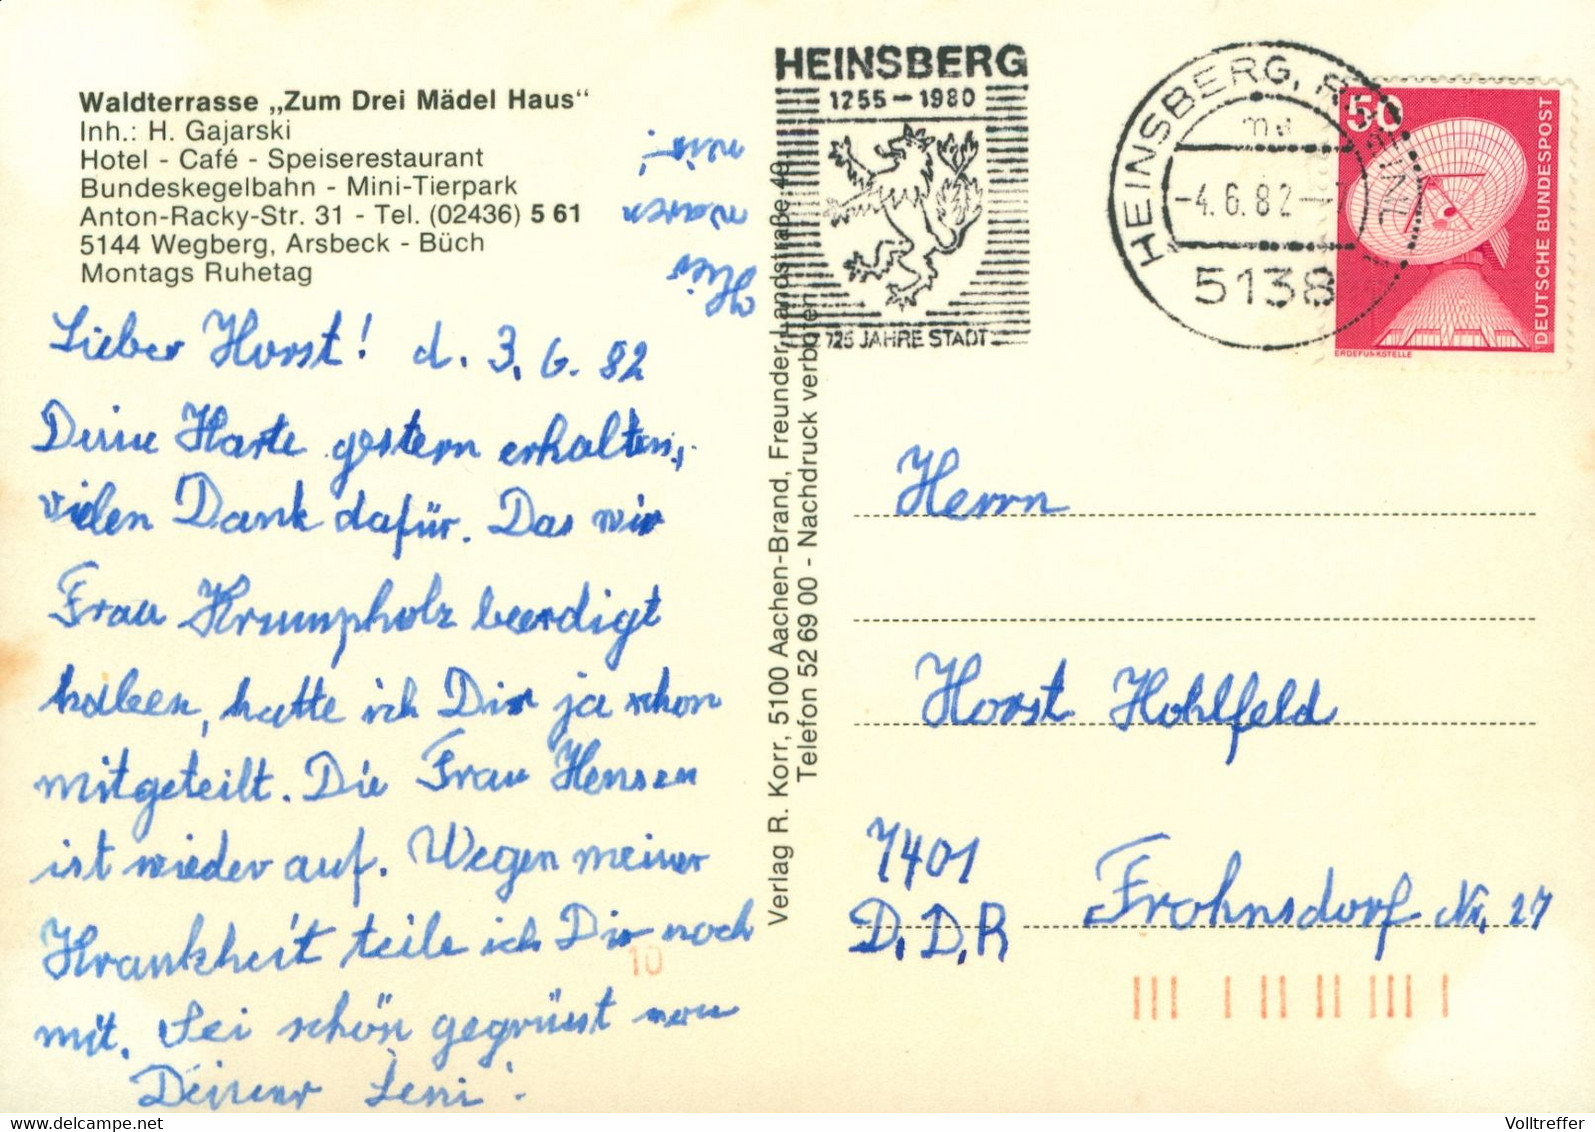 Waldterrasse „Zum Drei Mädel Haus“
Inh.: H. Gajarski
Hotel - Café - Speiserestaurant
Bundeskegelbahn - Mini-Tierpark
Anton-Racky-Str. 31 - Tel. (02436) 5 61
5144 Wegberg, Arsbeck - Büch
Montags Ruhetag
Hier
waren
wir
Lieber Horst! d. 3. 6. 82
Deine Karte gestern erhalten,
vielen Dank dafür. Das wir
Frau Krumpholz beerdigt
haben, hatte ich Dir ja schon
mitgeteilt. Die Frau Hensen
ist wieder auf. Wegen meiner
Krankheit teile ich Dir noch
mit. Sei schön gegrüsst von
Deiner Leni.
10
Verlag R. Korr, 5100 Aachen-Brand, Freunder Landstraße 40
Telefon 52 69 00 - Nachdruck verboten
HEINSBERG
1255 - 1980
725 JAHRE STADT
HEINSBERG, RHEINL
-4.6.82-
5138
50
DEUTSCHE BUNDESPOST
ERDEFUNKSTELLE
Herrn
Horst Hohlfeld
7401
D.D.R
Frohnsdorf Nr. 27
www.delcampe.net
Volltreffer